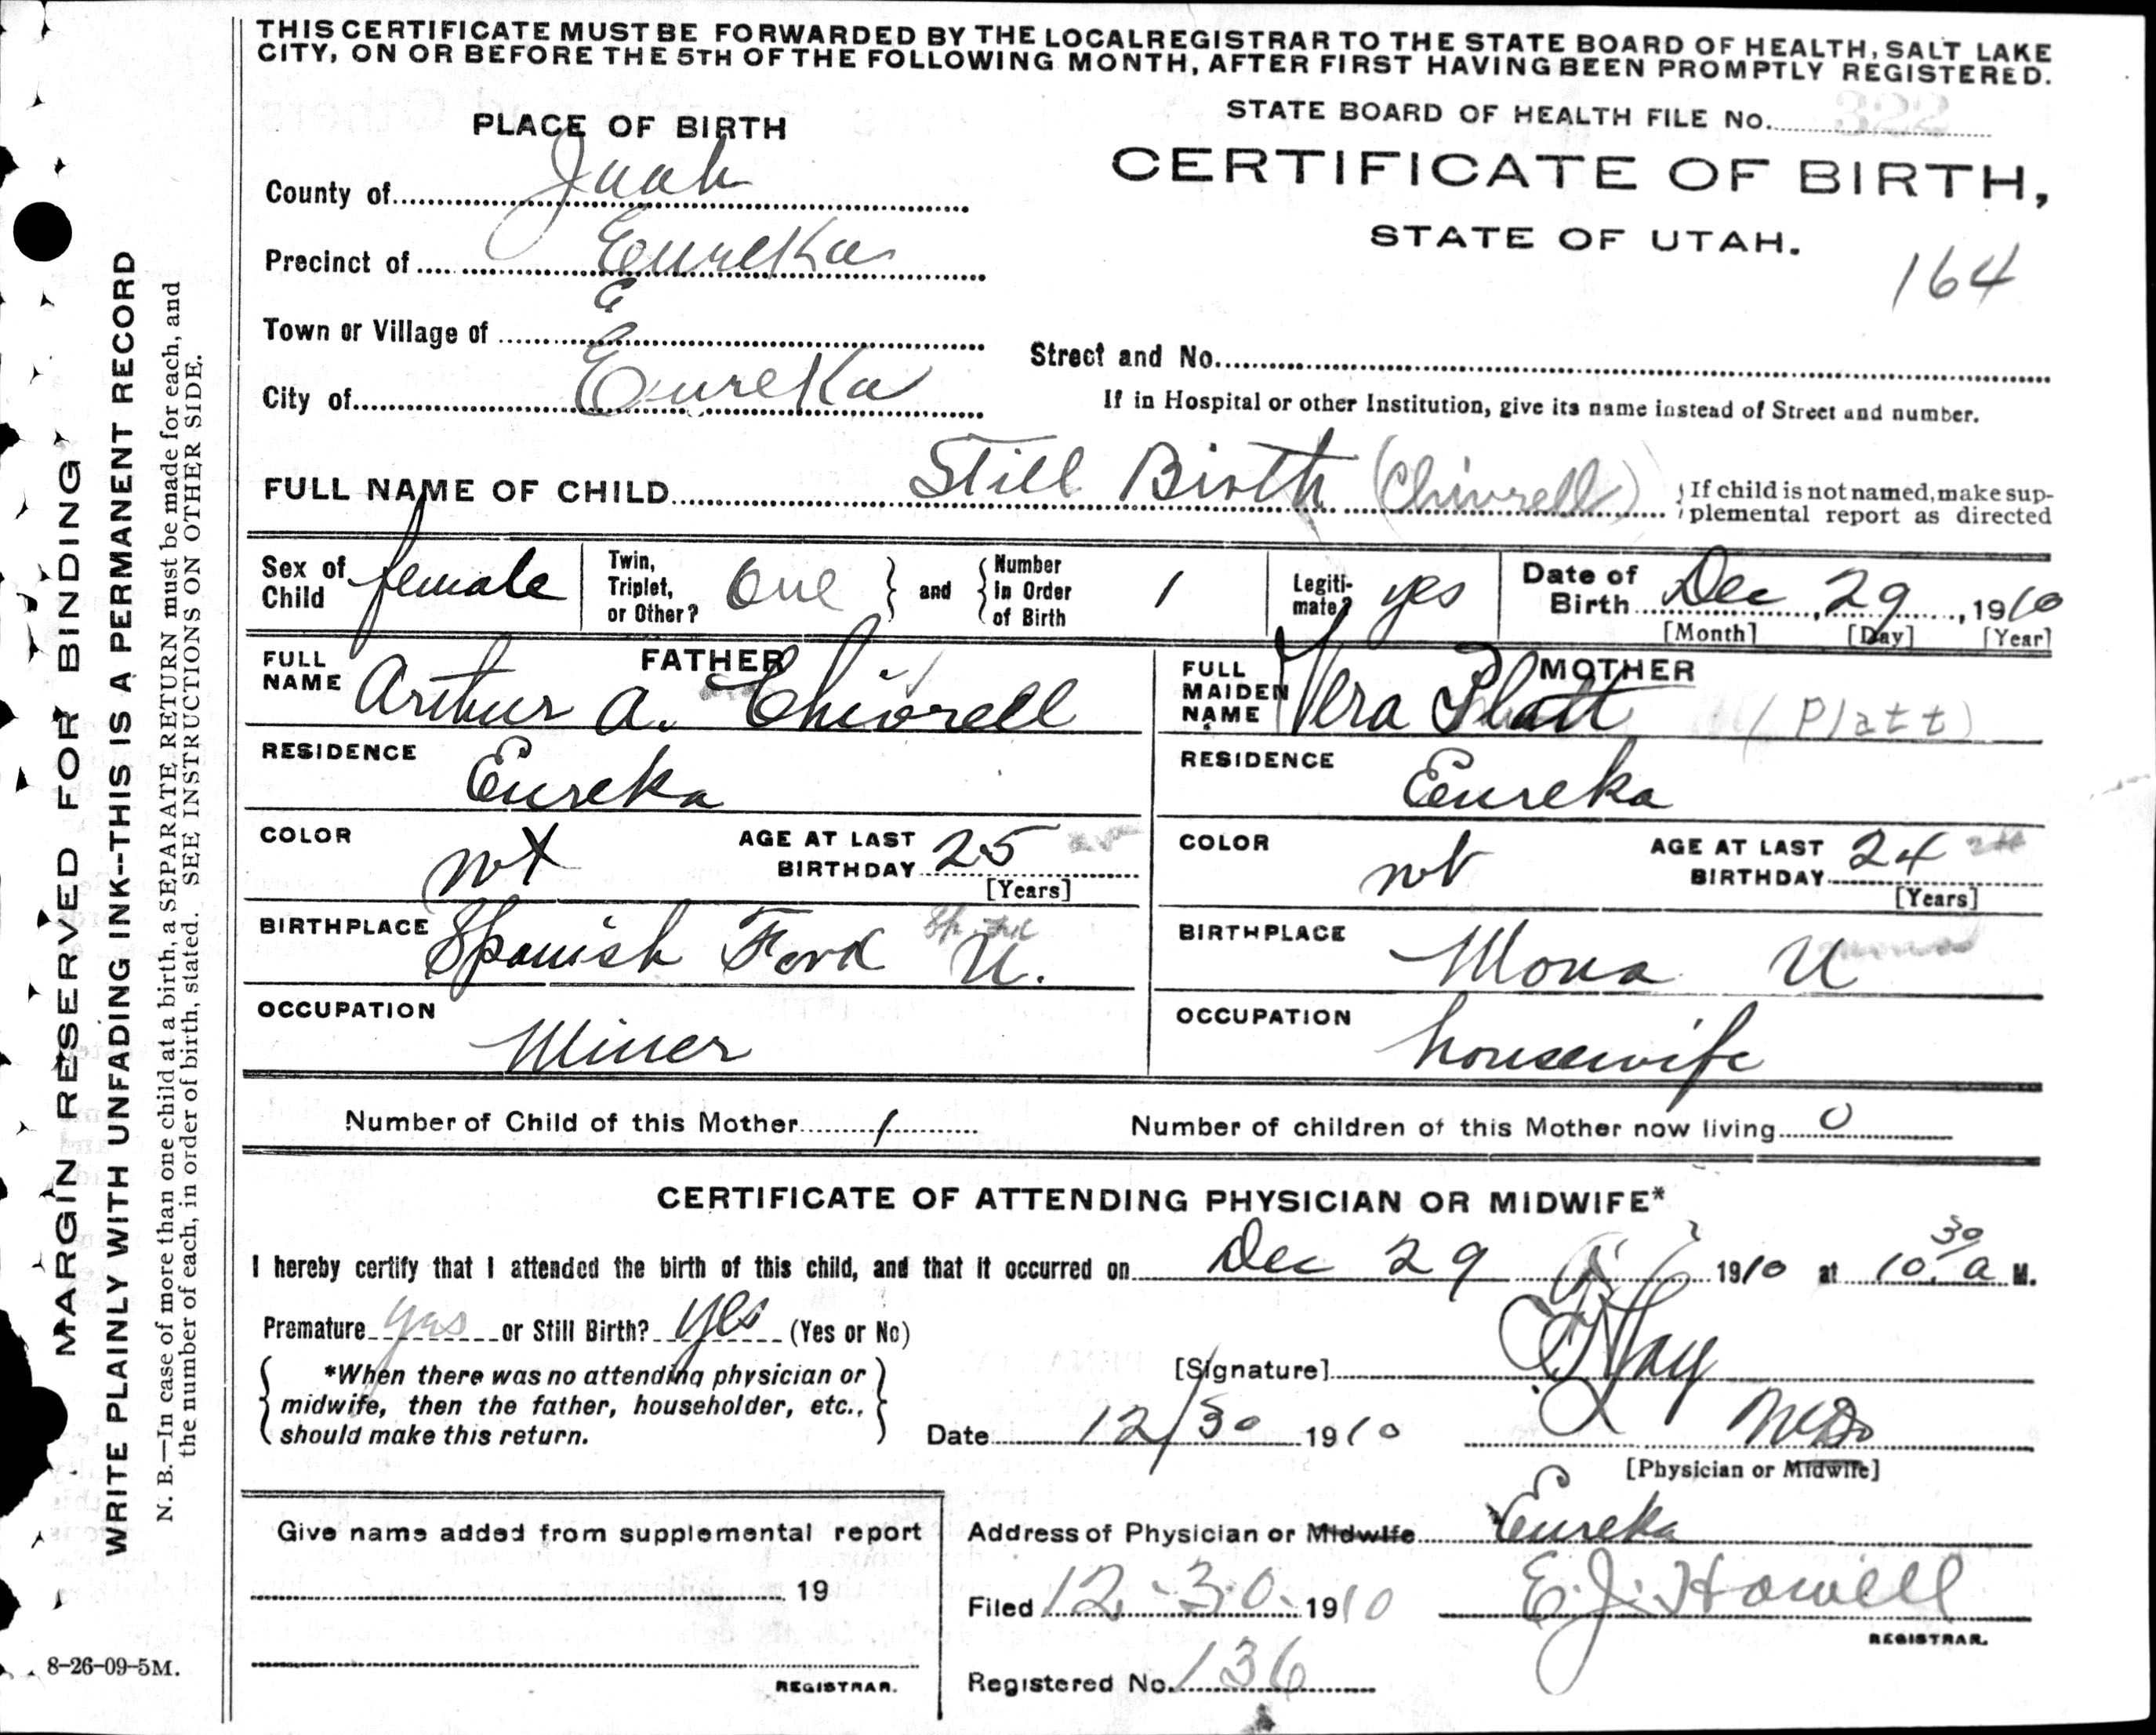 THIS CERTIFICATE MUST BE FORWARDED BY THE LOCAL REGISTRAR TO THE STATE BOARD OF HEALTH, SALT LAKE
CITY, ON OR BEFORE THE 5TH OF THE FOLLOWING MONTH, AFTER FIRST HAVING BEEN PROMPTLY REGISTERED.
STATE BOARD OF HEALTH FILE No. 322
PLACE OF BIRTH
CERTIFICATE OF BIRTH,
STATE OF UTAH.
164
County of Juab
Precinct of Eureka
Town or Village of
City of Eureka
Street and No.
If in Hospital or other Institution, give its name instead of Street and number.
FULL NAME OF CHILD Still Birth (Chivrell) If child is not named, make sup-
plemental report as directed
Sex of Child female Twin, Triplet, or Other? One and Number in Order of Birth 1 Legiti-mate? yes Date of Birth Dec, 29, 1910
[Month] [Day] [Year]
FATHER
FULL NAME Arthur A. Chivrell
MOTHER
FULL MAIDEN NAME Vera Platt (Platt)
RESIDENCE Eureka
RESIDENCE Eureka
COLOR wt AGE AT LAST BIRTHDAY 25
[Years]
COLOR wt AGE AT LAST BIRTHDAY 24
[Years]
BIRTHPLACE Spanish Fork U.
BIRTHPLACE Mona U
OCCUPATION Miner
OCCUPATION housewife
Number of Child of this Mother 1 Number of children of this Mother now living 0
CERTIFICATE OF ATTENDING PHYSICIAN OR MIDWIFE*
I hereby certify that I attended the birth of this child, and that it occurred on Dec 29 1910 at 10.30 a M.
Premature yes or Still Birth? yes (Yes or No)
*When there was no attending physician or
midwife, then the father, householder, etc.,
should make this return.
[Signature]
Date 12/30 1910 MD
[Physician or Midwife]
Give name added from supplemental report
19
REGISTRAR.
Address of Physician or Midwife Eureka
Filed 12-30-1910 E. J. Howell
REGISTRAR.
Registered No. 136
8-26-09-5M.
MARGIN RESERVED FOR BINDING
WRITE PLAINLY WITH UNFADING INK--THIS IS A PERMANENT RECORD
N. B.—In case of more than one child at a birth, a SEPARATE RETURN must be made for each, and
the number of each, in order of birth, stated. SEE INSTRUCTIONS ON OTHER SIDE.